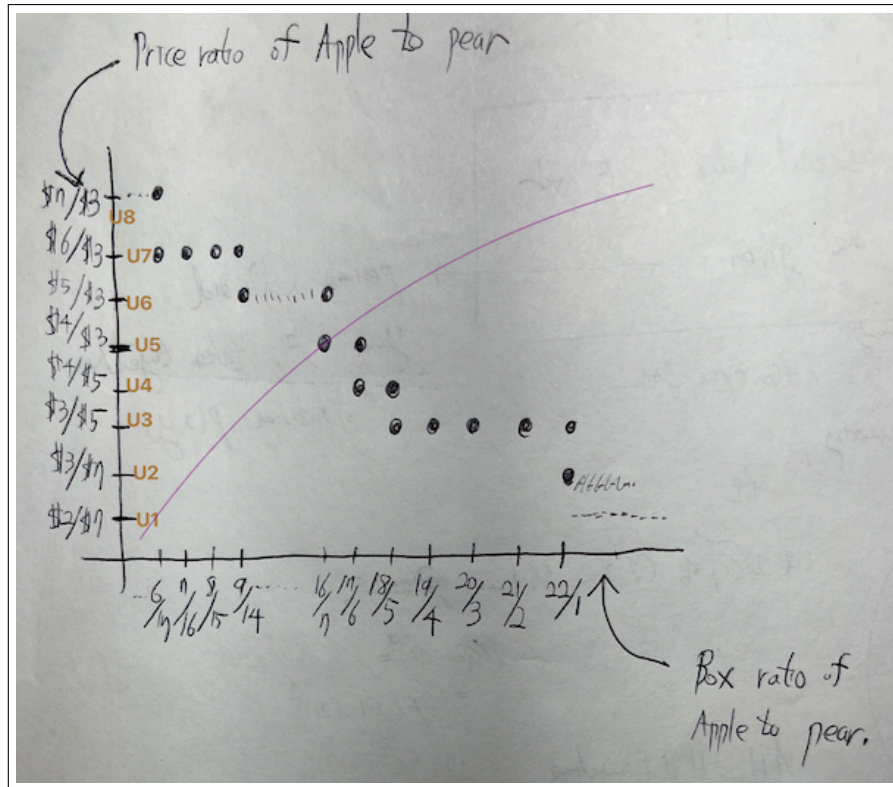 Price ratio of Apple to pear
$7/$3
U8
$6/$3 U7
$5/$3 U6
$4/$3 U5
$4/$5 U4
$3/$5 U3
$3/$7 U2
$2/$7 U1
6/17 7/16 8/15 9/14 16/7 17/6 18/5 19/4 20/3 21/2 22/1
Box ratio of
Apple to pear.